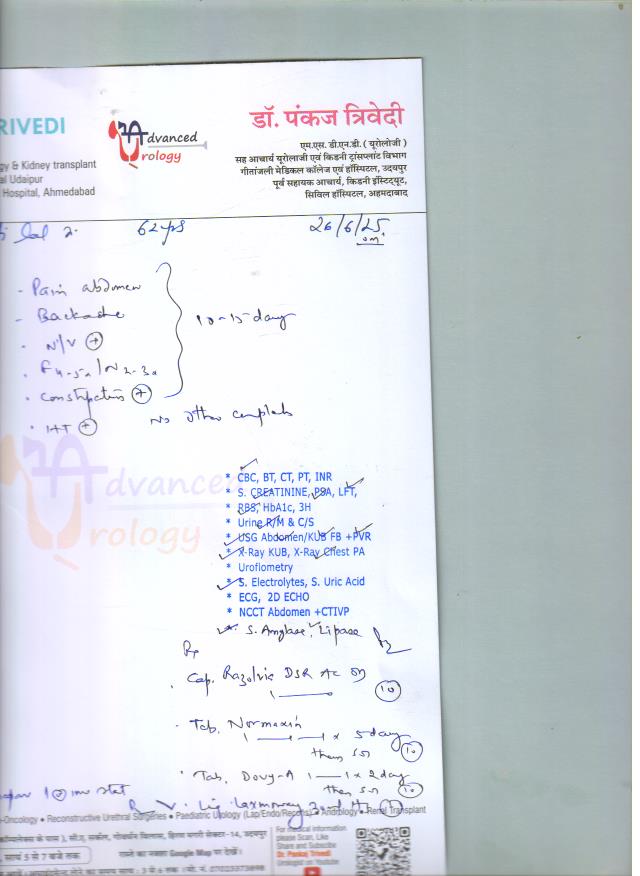 RIVEDI
Advanced
Urology
डॉ. पंकज त्रिवेदी
gy & Kidney transplant
al Udaipur
Hospital, Ahmedabad
एम.एस. डी.एन.बी. ( यूरोलोजी )
सह आचार्य यूरोलाजी एवं किडनी ट्रांसप्लांट विभाग
गीतांजली मेडिकल कॉलेज एवं हॉस्पिटल, उदयपुर
पूर्व सहायक आचार्य, किडनी इंस्टिट्यूट,
सिविल हॉस्पिटल, अहमदाबाद
lal 62yrs 26/6/25
- Pain abdomen
- Backache
10-15 day
. N/V +
. F 4-5x / N 2-3x
. Constipation +
No other complaints
. HT +
Advanced
Urology
* CBC, BT, CT, PT, INR
* S. CREATININE, PSA, LFT,
* RBS, HbA1c, 3H
* Urine R/M & C/S
* USG Abdomen/KUB FB +PVR
* X-Ray KUB, X-Ray Chest PA
* Uroflometry
* S. Electrolytes, S. Uric Acid
* ECG, 2D ECHO
* NCCT Abdomen +CTIVP
* S. Amylase, Lipase
Rx
. Cap. Razolvic DSR AC 10
. Tab. Normaxin
1 — 1 x 5 day
then 10
. Tab. 1 — 1 x 2 day
then 10
stat
-Oncology • Reconstructive Urethral Surgeries • Paediatric Urology (Lap/Endo/Recons) • Andrology • Renal Transplant
सायं 5 से 7 बजे तक
रास्ते का नक्शा Google Map पर देखें।
For medical information
please Scan, Like
Share and Subscribe
Dr. Pankaj Trivedi
Urologist on Youtube